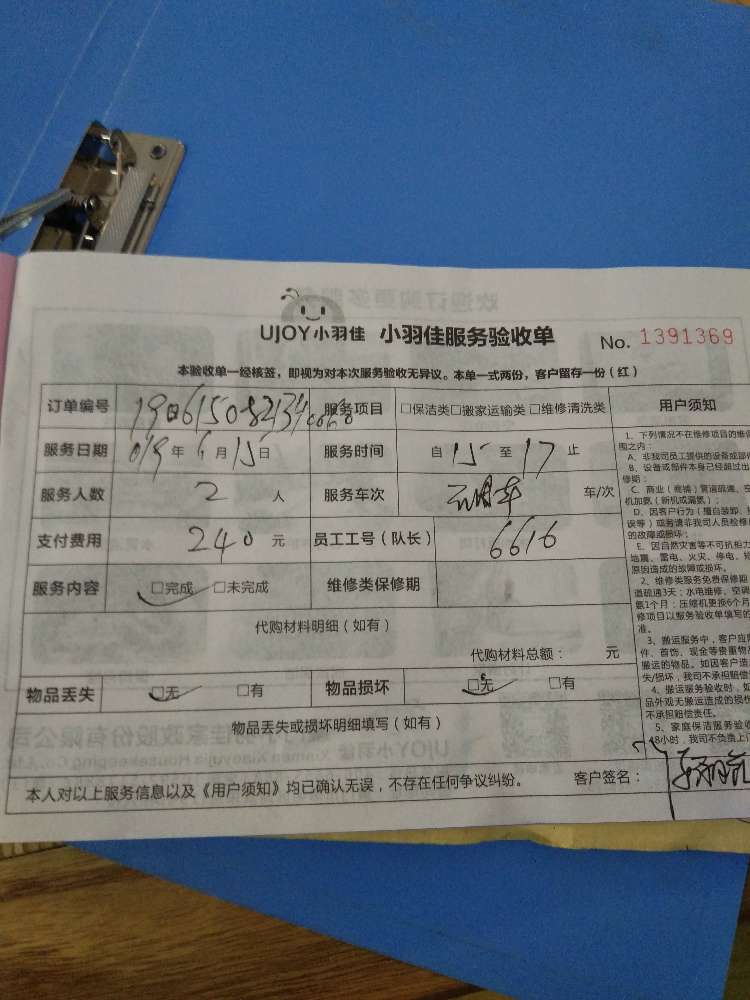 UJOY小羽佳 小羽佳服务验收单 No. 1391369
本验收单一经核签，即视为对本次服务验收无异议。本单一式两份，客户留存一份（红）
订单编号 服务项目 □保洁类□搬家运输类□维修清洗类 用户须知
服务日期 019年6月15日 服务时间 自15至17止
服务人数 2人 服务车次 车/次
支付费用 240元 员工工号（队长） 6616
服务内容 □完成 □未完成 维修类保修期
代购材料明细（如有）
代购材料总额： 元
物品丢失 □无 □有 物品损坏 □无 □有
物品丢失或损坏明细填写（如有）
本人对以上服务信息以及《用户须知》均已确认无误，不存在任何争议纠纷。 客户签名：
1、下列情况不在维修项目的维保
围之内：
A、非我司员工提供的设备或部件
B、设备或部件本身已经超过出
修期；
C、商业（商铺）管道疏通、空
机加氨（新机或漏氨）；
D、因客户行为（擅自装卸、
误等）或邀请非我司人员检修
的故障或损坏；
E、因自然灾害等不可抗拒力
地震、雷电、火灾、停电、
原因造成的故障或损坏。
2、维修类服务免费保修期
道疏通3天；水电维修、空调
氨1个月；压缩机更换6个月
修项目以服务验收单填写的
准。
3、搬运服务中，客户应
件、首饰、现金等贵重物
搬运的物品。如因客户造
失/损坏，我司不承担赔偿
4、搬运服务验收时，如
品外观无搬运造成的损
不承担赔偿责任。
5、家庭保洁服务验收
48小时，我司不负责上门